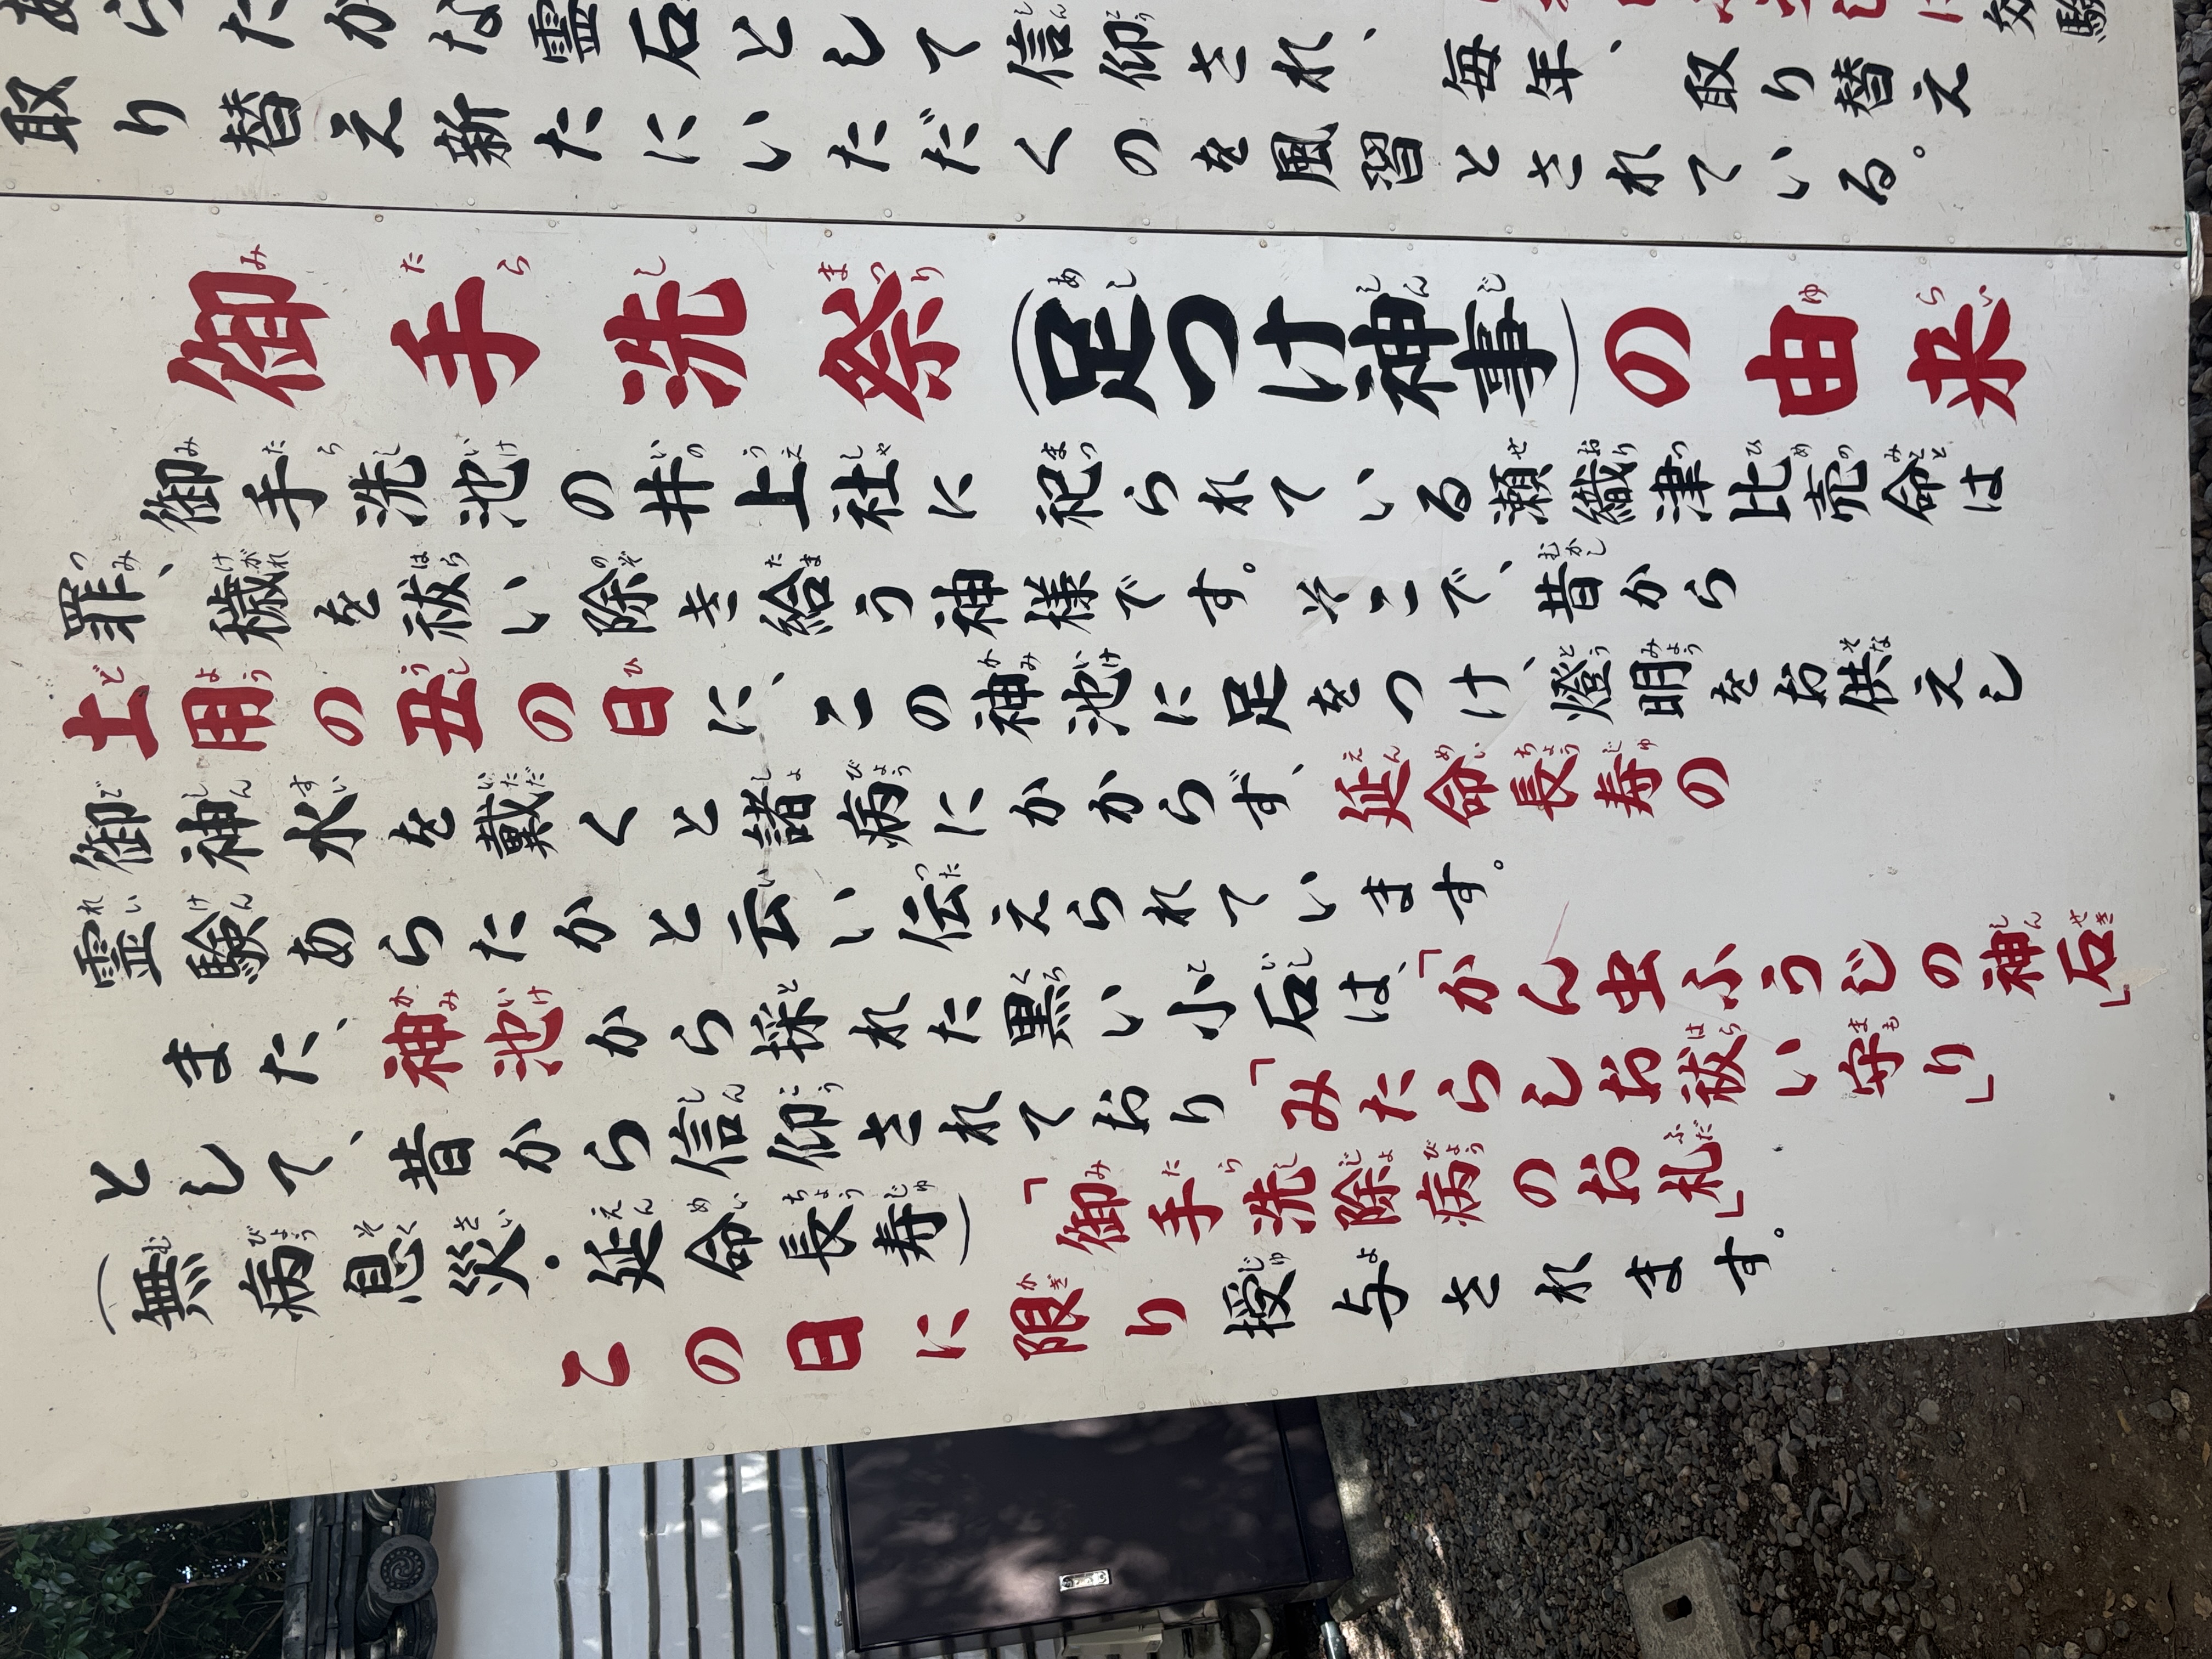 あらたかな霊石として信仰され、毎年、取り替え
取り替え新たにいただくのを風習とされている。
御手洗祭(足つけ神事)の由来
御手洗池の井上社に祀られている瀬織津比売命は
罪、穢を祓い除き給う神様です。そこで、昔から
土用の丑の日に、この神池に足をつけ、燈明をお供えし
御神水を戴くと諸病にかからず、延命長寿の
霊験あらたかと云い伝えられています。
また、神池から採れた黒い小石は、「かん虫ふうじの神石」
として、昔から信仰されており「みたらしお祓い守り」
(無病息災・延命長寿)「御手洗除病のお札」
この日に限り授与されます。